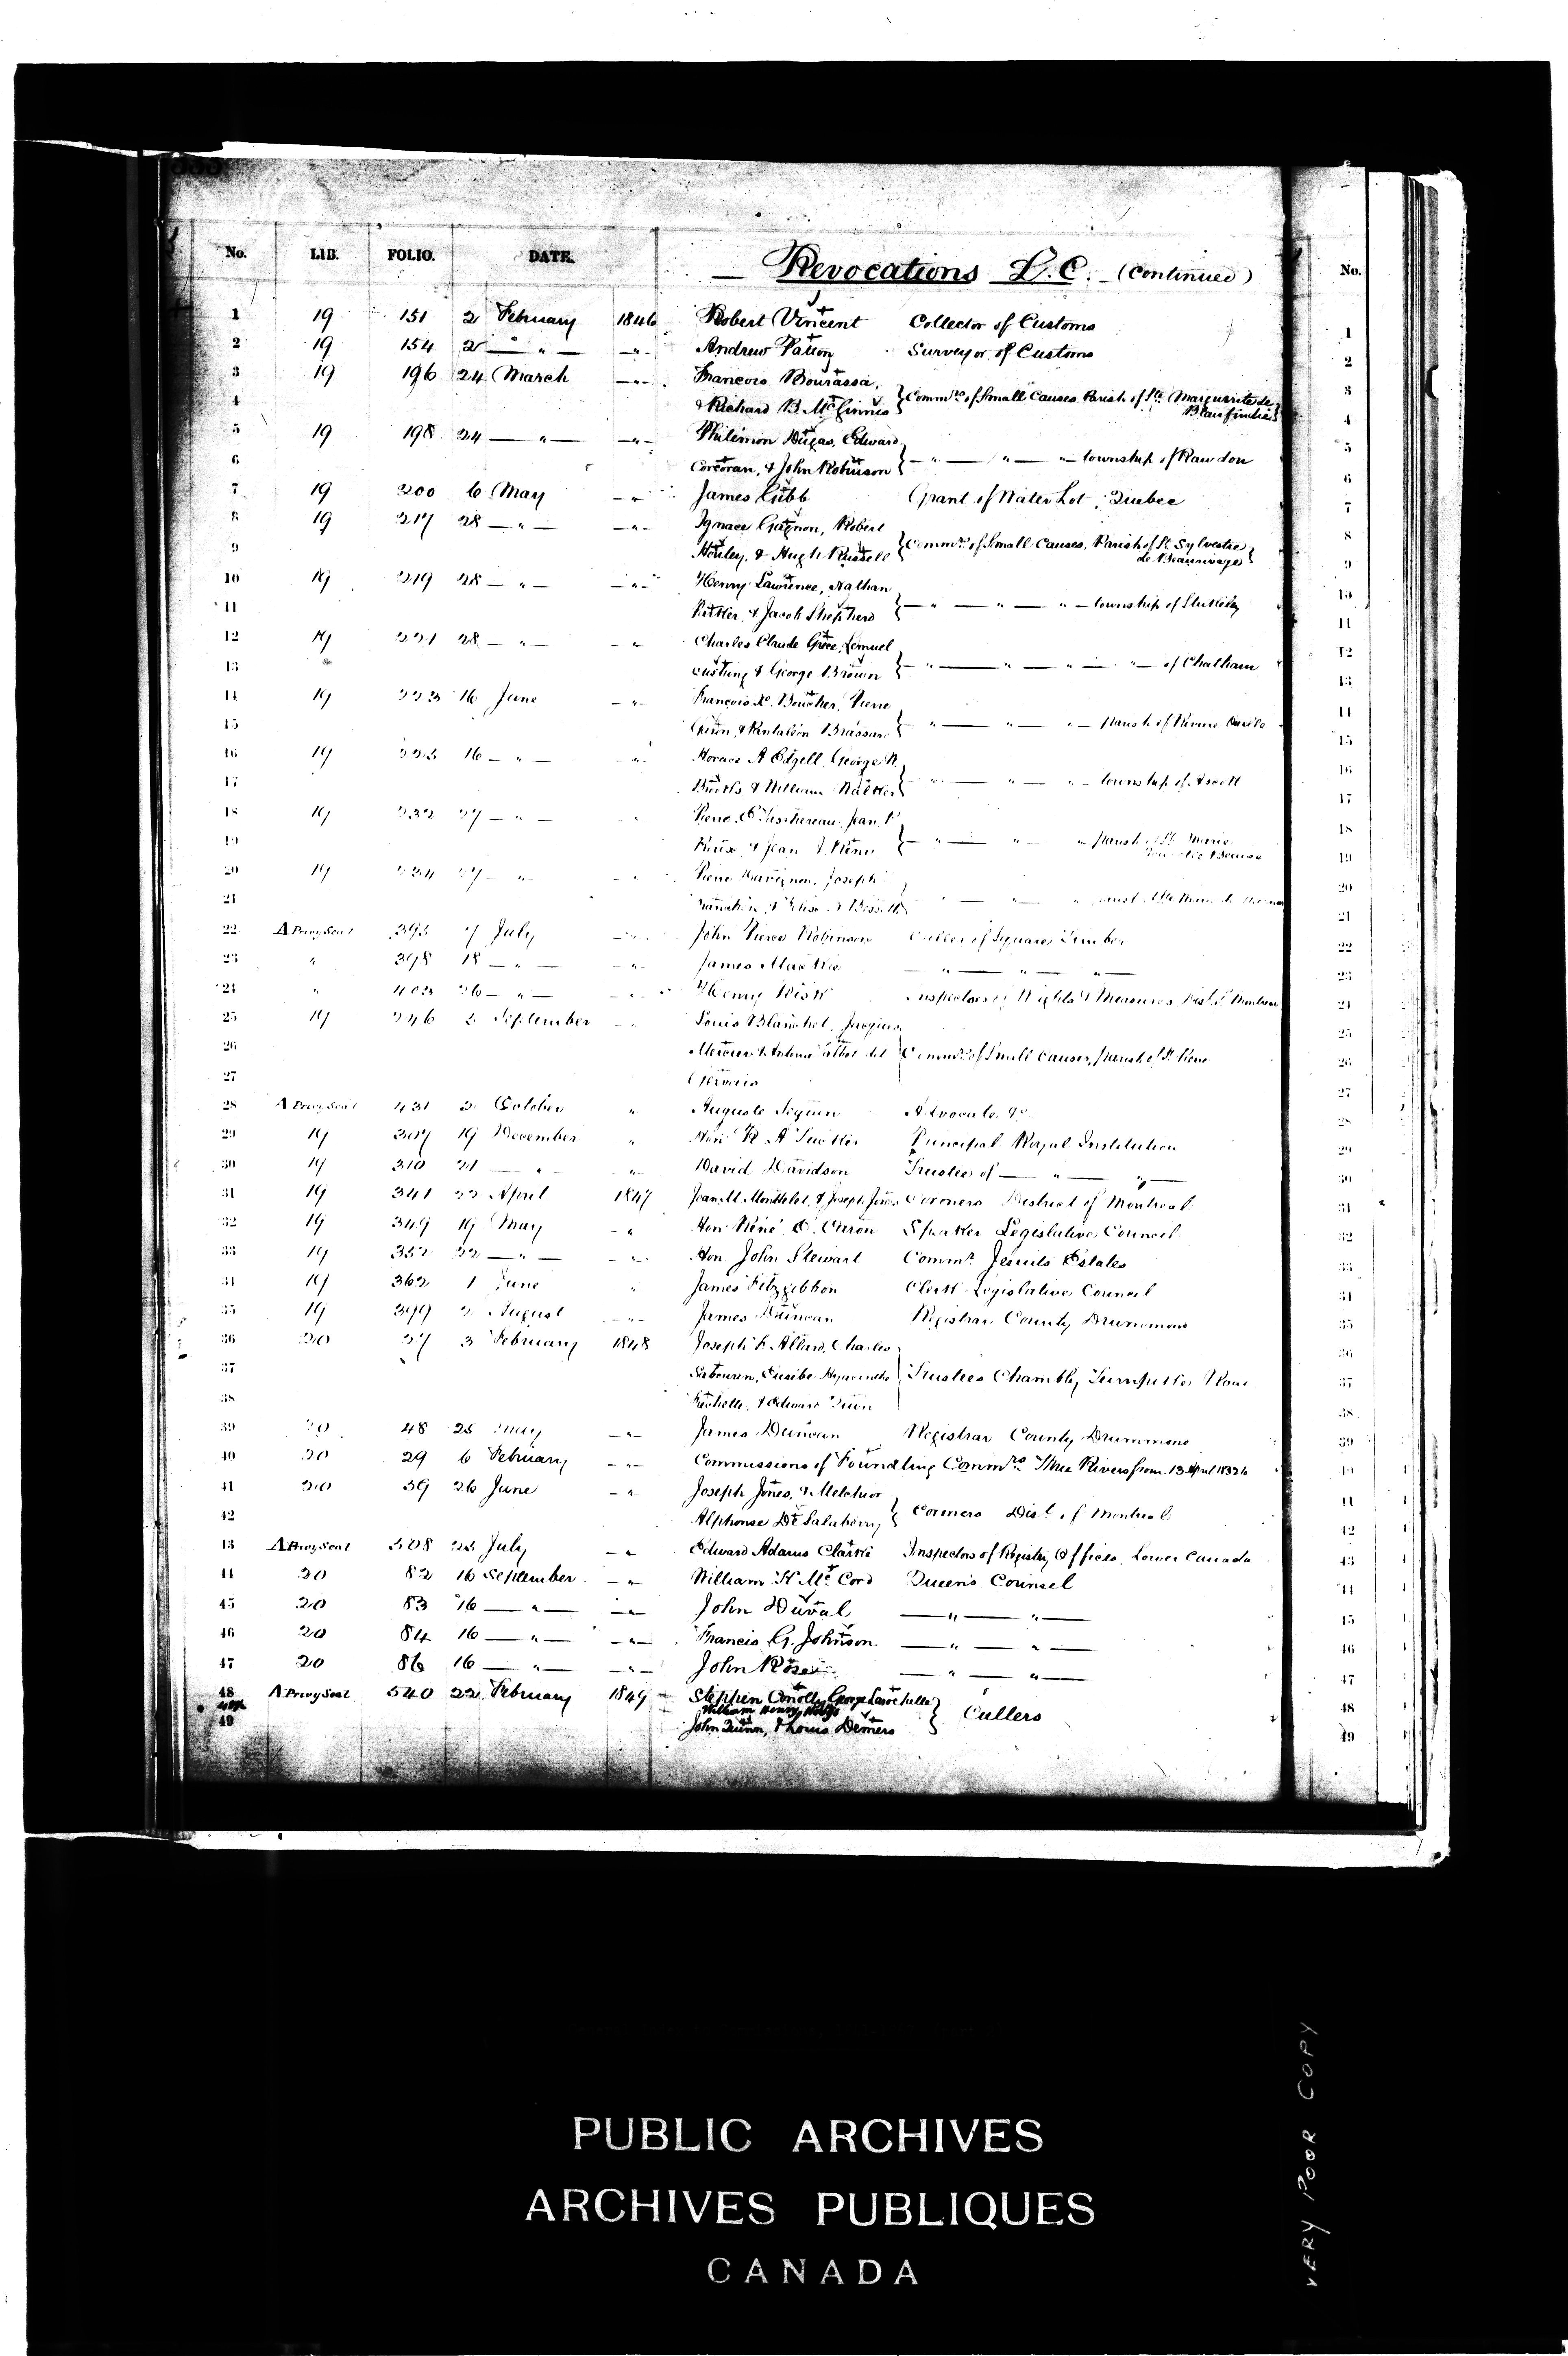 No. LIB. FOLIO. DATE. Revocations L.C. (Continued) No.
1 19 151 2 February 1846 Robert Vincent Collector of Customs 1
2 19 154 2 — " — — " - Andrew Patton Surveyor of Customs 2
3 19 196 24 March — " - Francois Bourassa, } Commrs of Small Causes, Parish of Ste Marguerite de 3
4 & Richard B. McGinnis Blairfindie 4
5 19 198 24 — " — — " - Philemon Dugas, Edward 5
6 Corcoran, & John Robinson } — " — " — " — township of Rawdon 6
7 19 200 6 May — " James Gibb Grant of Water Lot, Quebec 7
8 19 217 28 — " — — " - Ignace Gagnon, Robert } Commrs of Small Causes, Parish of St Sylvestre 8
9 & Hugh Russell de Beaurivage 9
10 19 219 28 — " — — " - Henry Lawrence, Nathan 10
11 & Jacob Shepherd } — " — " — " — township of Stukely 11
12 19 221 28 — " — — " Charles Claude Grece, Lemuel 12
13 Cushing & George Brown } — " — " — " — " — of Chatham 13
14 19 223 16 June — " - François X. Boucher, Pierre 14
15 & Pantaléon Brassard } — " — " — " — Parish of 15
16 19 225 16 — " — " Horace A Edgell, George 16
17 & William Walker } — " — " — " — township of Ascott 17
18 19 232 27 — " — Pierre E. Taschereau, Jean P. 18
19 & Jean } — " — " — " parish of St Marie 19
20 19 234 27 — " Pierre Joseph 20
21 21
22 A Privy Seal 395 7 July — " - John Pierce Robinson Culler of Square Timber 22
23 " 398 18 — " — — " - James Mackie — " — " — " — 23
24 " 403 26 — " — Henry Inspectors of Weights & Measures Dist. Montreal 24
25 19 246 2 September Louis Blanchet, Jacques 25
26 Mercier & Antoine Talbot dit } Commrs of Small Causes, Parish of St Pierre 26
27 Gervais 27
28 A Privy Seal 431 2 October " Auguste Advocate &c 28
29 19 307 19 December " Hon R. A Tucker Principal Royal Institution 29
30 19 310 21 — " " David Davidson Trustee of — " — " — 30
31 19 341 22 April 1847 Jean M. Mondelet, & Joseph Jones Coroners District of Montreal 31
32 19 349 19 May — " Hon René E. Caron Speaker Legislative Council 32
33 19 352 22 — " — — " - Hon. John Stewart Commr Jesuits Estates 33
34 19 362 1 June " James Fitzgibbon Clerk Legislative Council 34
35 19 399 2 August — " - James Duncan Registrar County Drummond 35
36 20 27 3 February 1848 Joseph F. Allard, Charles 36
37 Sabourin, Eusèbe Hyacinthe } Trustees Chambly Turnpike Road 37
38 & Edward 38
39 20 48 25 May — " - James Duncan Registrar County Drummond 39
40 20 29 6 February — " - Commissions of Foundling Commrs Three Rivers from 13 April 1832 40
41 20 59 26 June — " Joseph Jones, & Melchior 41
42 Alphonse De Salaberry } Coroners Dist. of Montreal 42
43 A Privy Seal 508 25 July — " Edward Adams Clarke Inspectors of Registry Offices, Lower Canada 43
44 20 82 16 September — " William K. McCord Queen's Counsel 44
45 20 83 16 — " — — " — John Duval — " — " — 45
46 20 84 16 — " — — " — Francis G. Johnson — " — " — 46
47 20 86 16 — " — — " — John Rose — " — " — 47
48 A Privy Seal 540 22 February 1849 Stephen Conolly, George Larochelle 48
William Henry } Cullers
49 John Quinn, & Louis Demers 49
PUBLIC ARCHIVES
ARCHIVES PUBLIQUES
CANADA
VERY POOR COPY